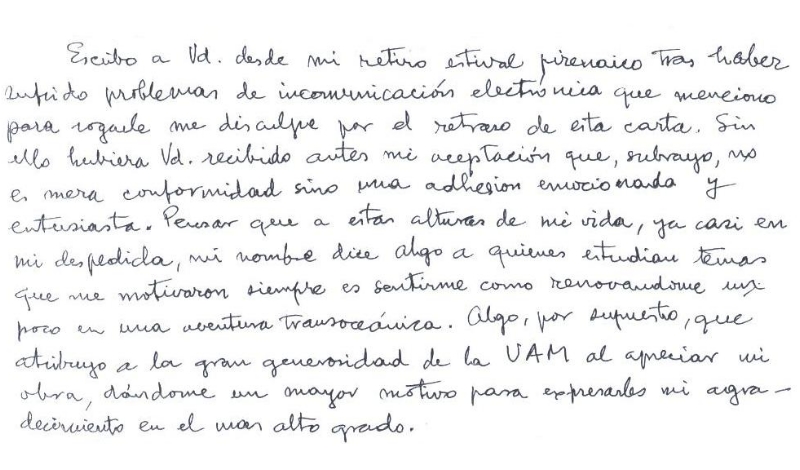 Escribo a Vd. desde mi retiro estival pirenaico tras haber
sufrido problemas de incomunicación electrónica que menciono
para rogarle me disculpe por el retraso de esta carta. Sin
ello hubiera Vd. recibido antes mi aceptación que, subrayo, no
es mera conformidad sino una adhesion emocionada y
entusiasta. Pensar que a estas alturas de mi vida, ya casi en
mi despedida, mi nombre dice algo a quienes estudian temas
que me motivaron siempre es sentirme como renovandome un
poco en una aventura transoceánica. Algo, por supuesto, que
atribuyo a la gran generosidad de la UAM al apreciar mi
obra, dándome un mayor motivo para expresarles mi agra-
decimiento en el mas alto grado.